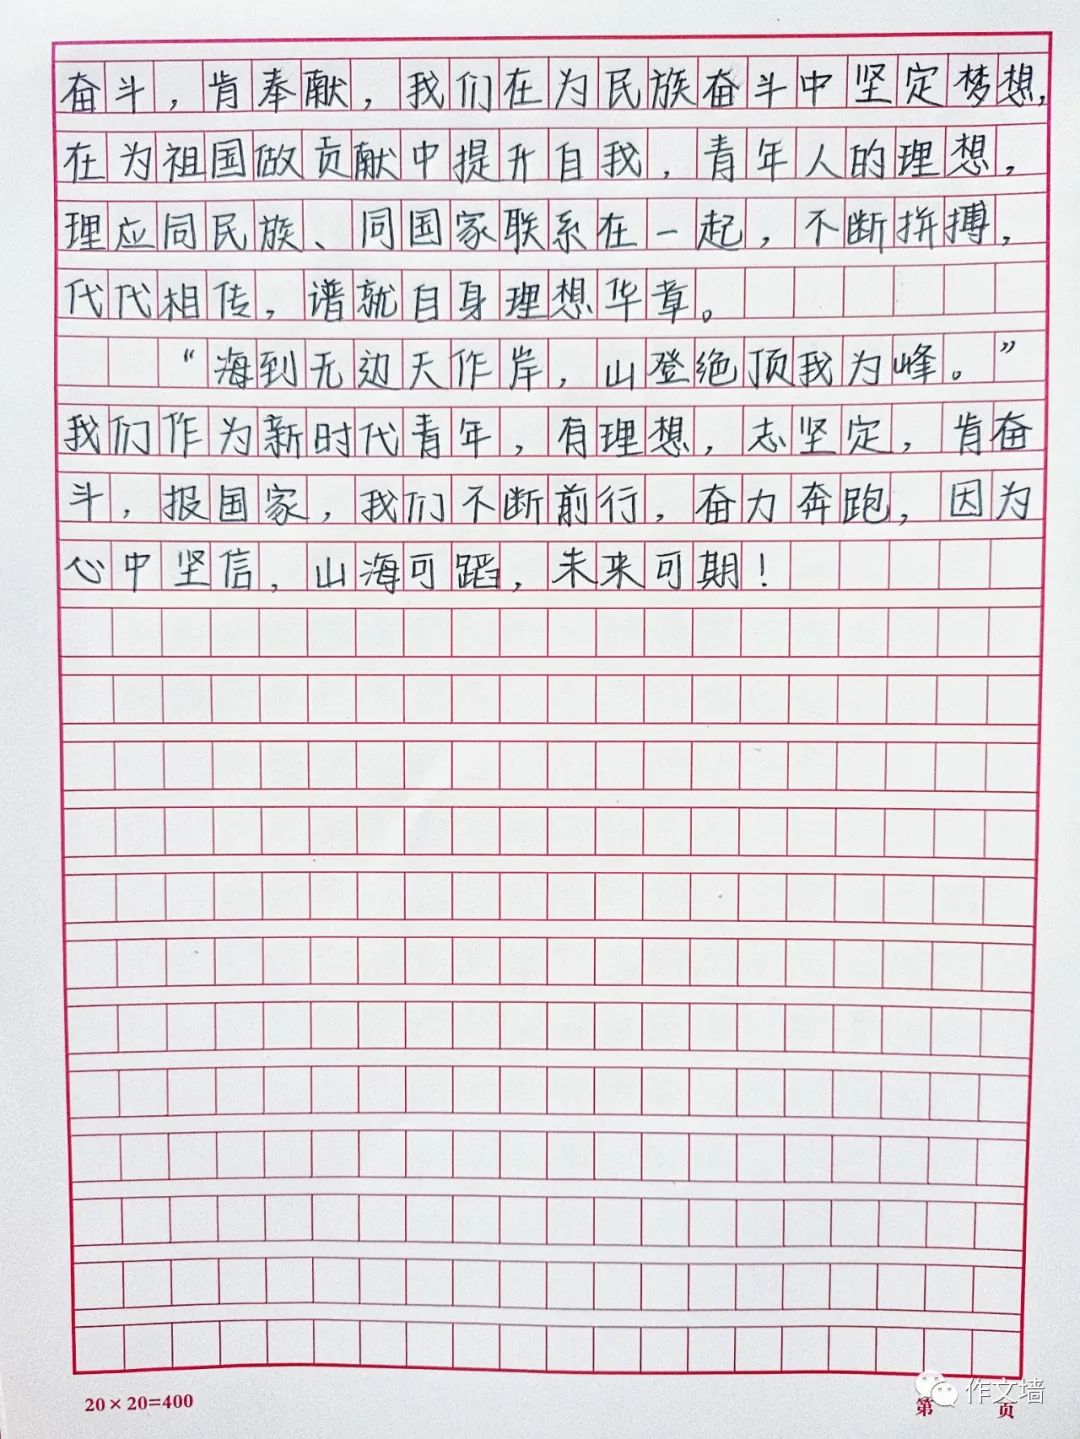 奋斗，肯奉献，我们在为民族奋斗中坚定梦想，
在为祖国做贡献中提升自我，青年人的理想，
理应同民族、同国家联系在一起，不断拼搏，
代代相传，谱就自身理想华章。
“海到无边天作岸，山登绝顶我为峰。”
我们作为新时代青年，有理想，志坚定，肯奋
斗，报国家，我们不断前行，奋力奔跑，因为
心中坚信，山海可蹈，未来可期！
20×20=400
第 页
作文墙